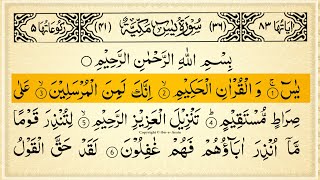 اٰیَاتُهَا ۸۳ (۳۶) سُوْرَةُ یٰسٓ مَكِّیَّةٌ (۴۱) رُكُوْعَاتُهَا ۵
بِسْمِ اللّٰهِ الرَّحْمٰنِ الرَّحِیْمِ
یٰسٓ ۚ﴿۱﴾ وَ الْقُرْاٰنِ الْحَكِیْمِ ۙ﴿۲﴾ اِنَّكَ لَمِنَ الْمُرْسَلِیْنَ ۙ﴿۳﴾ عَلٰی
صِرَاطٍ مُّسْتَقِیْمٍ ؕ﴿۴﴾ تَنْزِیْلَ الْعَزِیْزِ الرَّحِیْمِ ۙ﴿۵﴾ لِتُنْذِرَ قَوْمًا
مَّاۤ اُنْذِرَ اٰبَآؤُهُمْ فَهُمْ غٰفِلُوْنَ ﴿۶﴾ لَقَدْ حَقَّ الْقَوْلُ